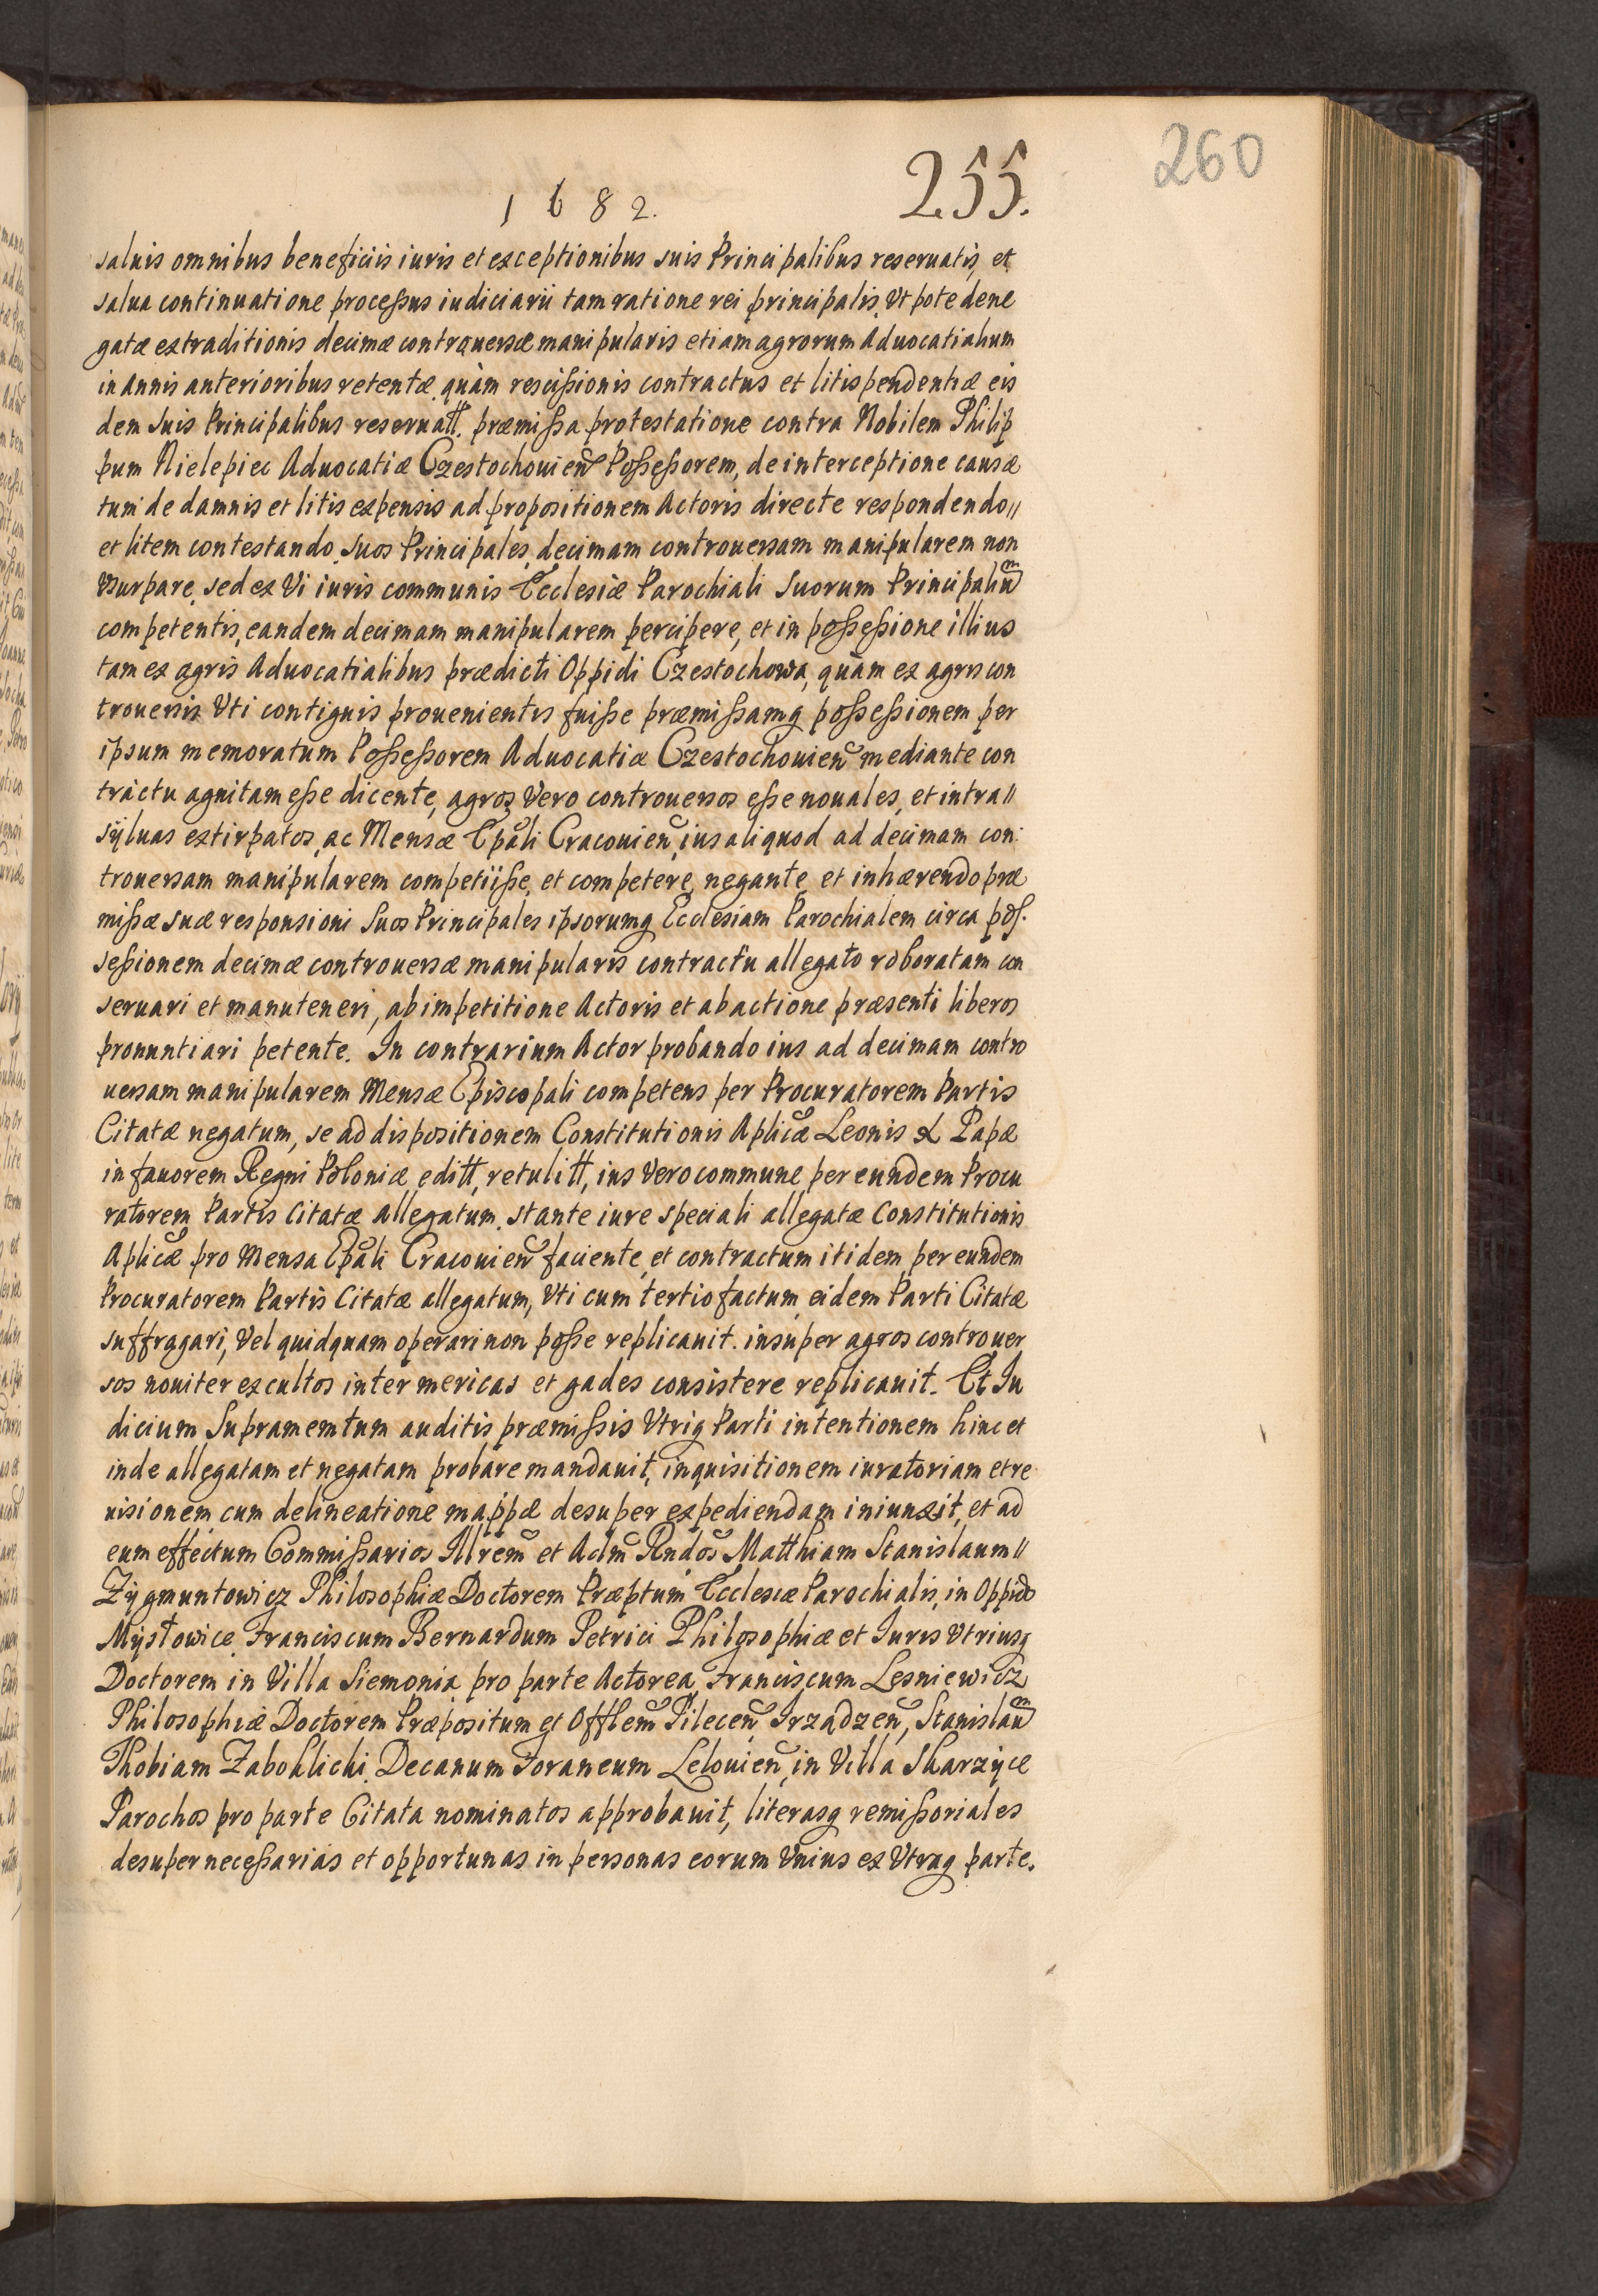 260
255.
1682.
saluis omnibus beneficiis iuris et exceptionibus suis Principalibus reseruatis, et
salua continuatione processus iudiciarii tam ratione rei principalis, Vt pote dene
gatæ extraditionis decimæ controuersæ manipularis etiam agrorum Aduocatialium
in Annis anterioribus retentæ, quàm rescissionis contractus et litispendentiæ eis
dem suis Principalibus reseruatt. præmissa protestatione contra Nobilem Philip
pum Nielepiec Aduocatiæ Czestochouien Possessorem, de interceptione causæ
tum de damnis et litis expensis ad propositionem Actoris directe respondendo //
et litem contestando, suos Principales, decimam controuersam manipularem non
Vsurpare, sed ex Vi iuris communis Ecclesiæ Parochiali Suorum Principaliũm
competentis, eandem decimam manipularem percipere, et in possessione illius
tam ex agris Aduocatialibus prædicti Oppidi Czestochowa, quàm ex agris con
trouersis Vti contiguis prouenientis fuisse præmissamq possessionem per
ipsum memoratum Possessorem Aduocatiæ Czestochouien mediante con
tractu agnitam esse dicente, agros Vero controuersos esse nouales, et intra //
syluas extirpatos, ac Mensæ Epali Cracouien, ius aliquod ad decimam con:
trouersam manipularem competiisse, et competere, negante, et inhærendo præ
missæ suæ responsioni Suos Principales ipsorumq Ecclesiam Parochialem circa pos.
sessionem decimæ controuersæ manipularis contractu allegato roboratam con
seruari et manuteneri, ab impetitione Actoris et ab actione præsenti liberos
pronuntiari petente. In contrarium Actor probando ius ad decimam contro
uersam manipularem Mensæ Episcopali competens per Procuratorem Partis
Citatæ negatum, se ad dispositionem Constitutionis Aplicæ Leonis X Papæ
in fauorem Regni Poloniæ editt, retulitt, ius Vero commune per eundem Procu
ratorem Partis Citatæ Allegatum, stante iure speciali allegatæ Constitutionis
Aplicæ pro Mensa Epali Cracouien faciente, et contractum itidem per eundem
Procuratorem Partis Citatæ allegatum, Vti cum tertio factum, eidem Parti Citatæ
suffragari, Vel quidquam operari non posse replicauit. insuper agros controuer
sos nouiter excultos inter mericas et gades consistere replicauit. Et Iu
dicium Supramemtum auditis præmissis Vtriq Parti intentionem hinc et
inde allegatam et negatam probare mandauit, inquisitionem iuratoriam et re
uisionem cum delineatione mappæ desuper expediendam iniunxit, et ad
eum effectum Commissarios Illrem et Adm Rndos Matthiam Stanislaum //
Zygmuntowicz Philosophiæ Doctorem Præptum Ecclesiæ Parochialis, in Oppido
Mysłowice, Franciscum Bernardum Petrici Philosophiæ et Iuris Vtriusq
Doctorem in Villa Siemonia pro parte Actorea, Franciscum Lesniewicz
Philosophiæ Doctorem Præpositum et Offlem Pilecen Irządzen, Stanislaũm
Thobiam Zabohlichi Decanum Foraneum Lelouien, in Villa Skarzyce
Parochos pro parte Citata nominatos approbauit, literasq remissoriales
desuper necessarias et opportunas in personas eorum Vnius ex Vtraq parte.